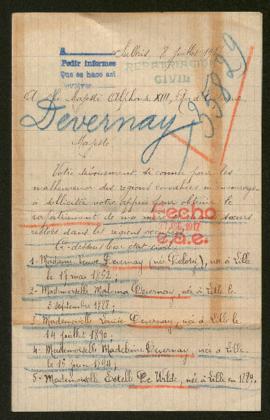 A
Pedir informes
Que se hace así
Selles, 8 juillet 1917
REPATRIACION
CIVIL
35829
A Sa Majesté Alphonse XIII, Roi d'Espagne
Devernay
Majesté
Votre dévouement si connu pour les
malheureux des régions envahies m'encourage
à solliciter votre appui pour obtenir le
rapatriement de ma mère et de mes sœurs
restées dans les régions occupées.
Fecho
1917
e.a.e.
Ci-dessous leur état civil
1- Madame Veuve Devernay (née Delory), née à Lille
le 17 mai 1852,
2- Mademoiselle Devernay, née à Lille le
3 septembre 1888,
3- Mademoiselle Louise Devernay, née à Lille le
14 juillet 1890,
4- Mademoiselle Madeleine Devernay, née à Lille
le 15 juin 1894,
5- Mademoiselle Estelle De Wilde, née à Lille en 1889,